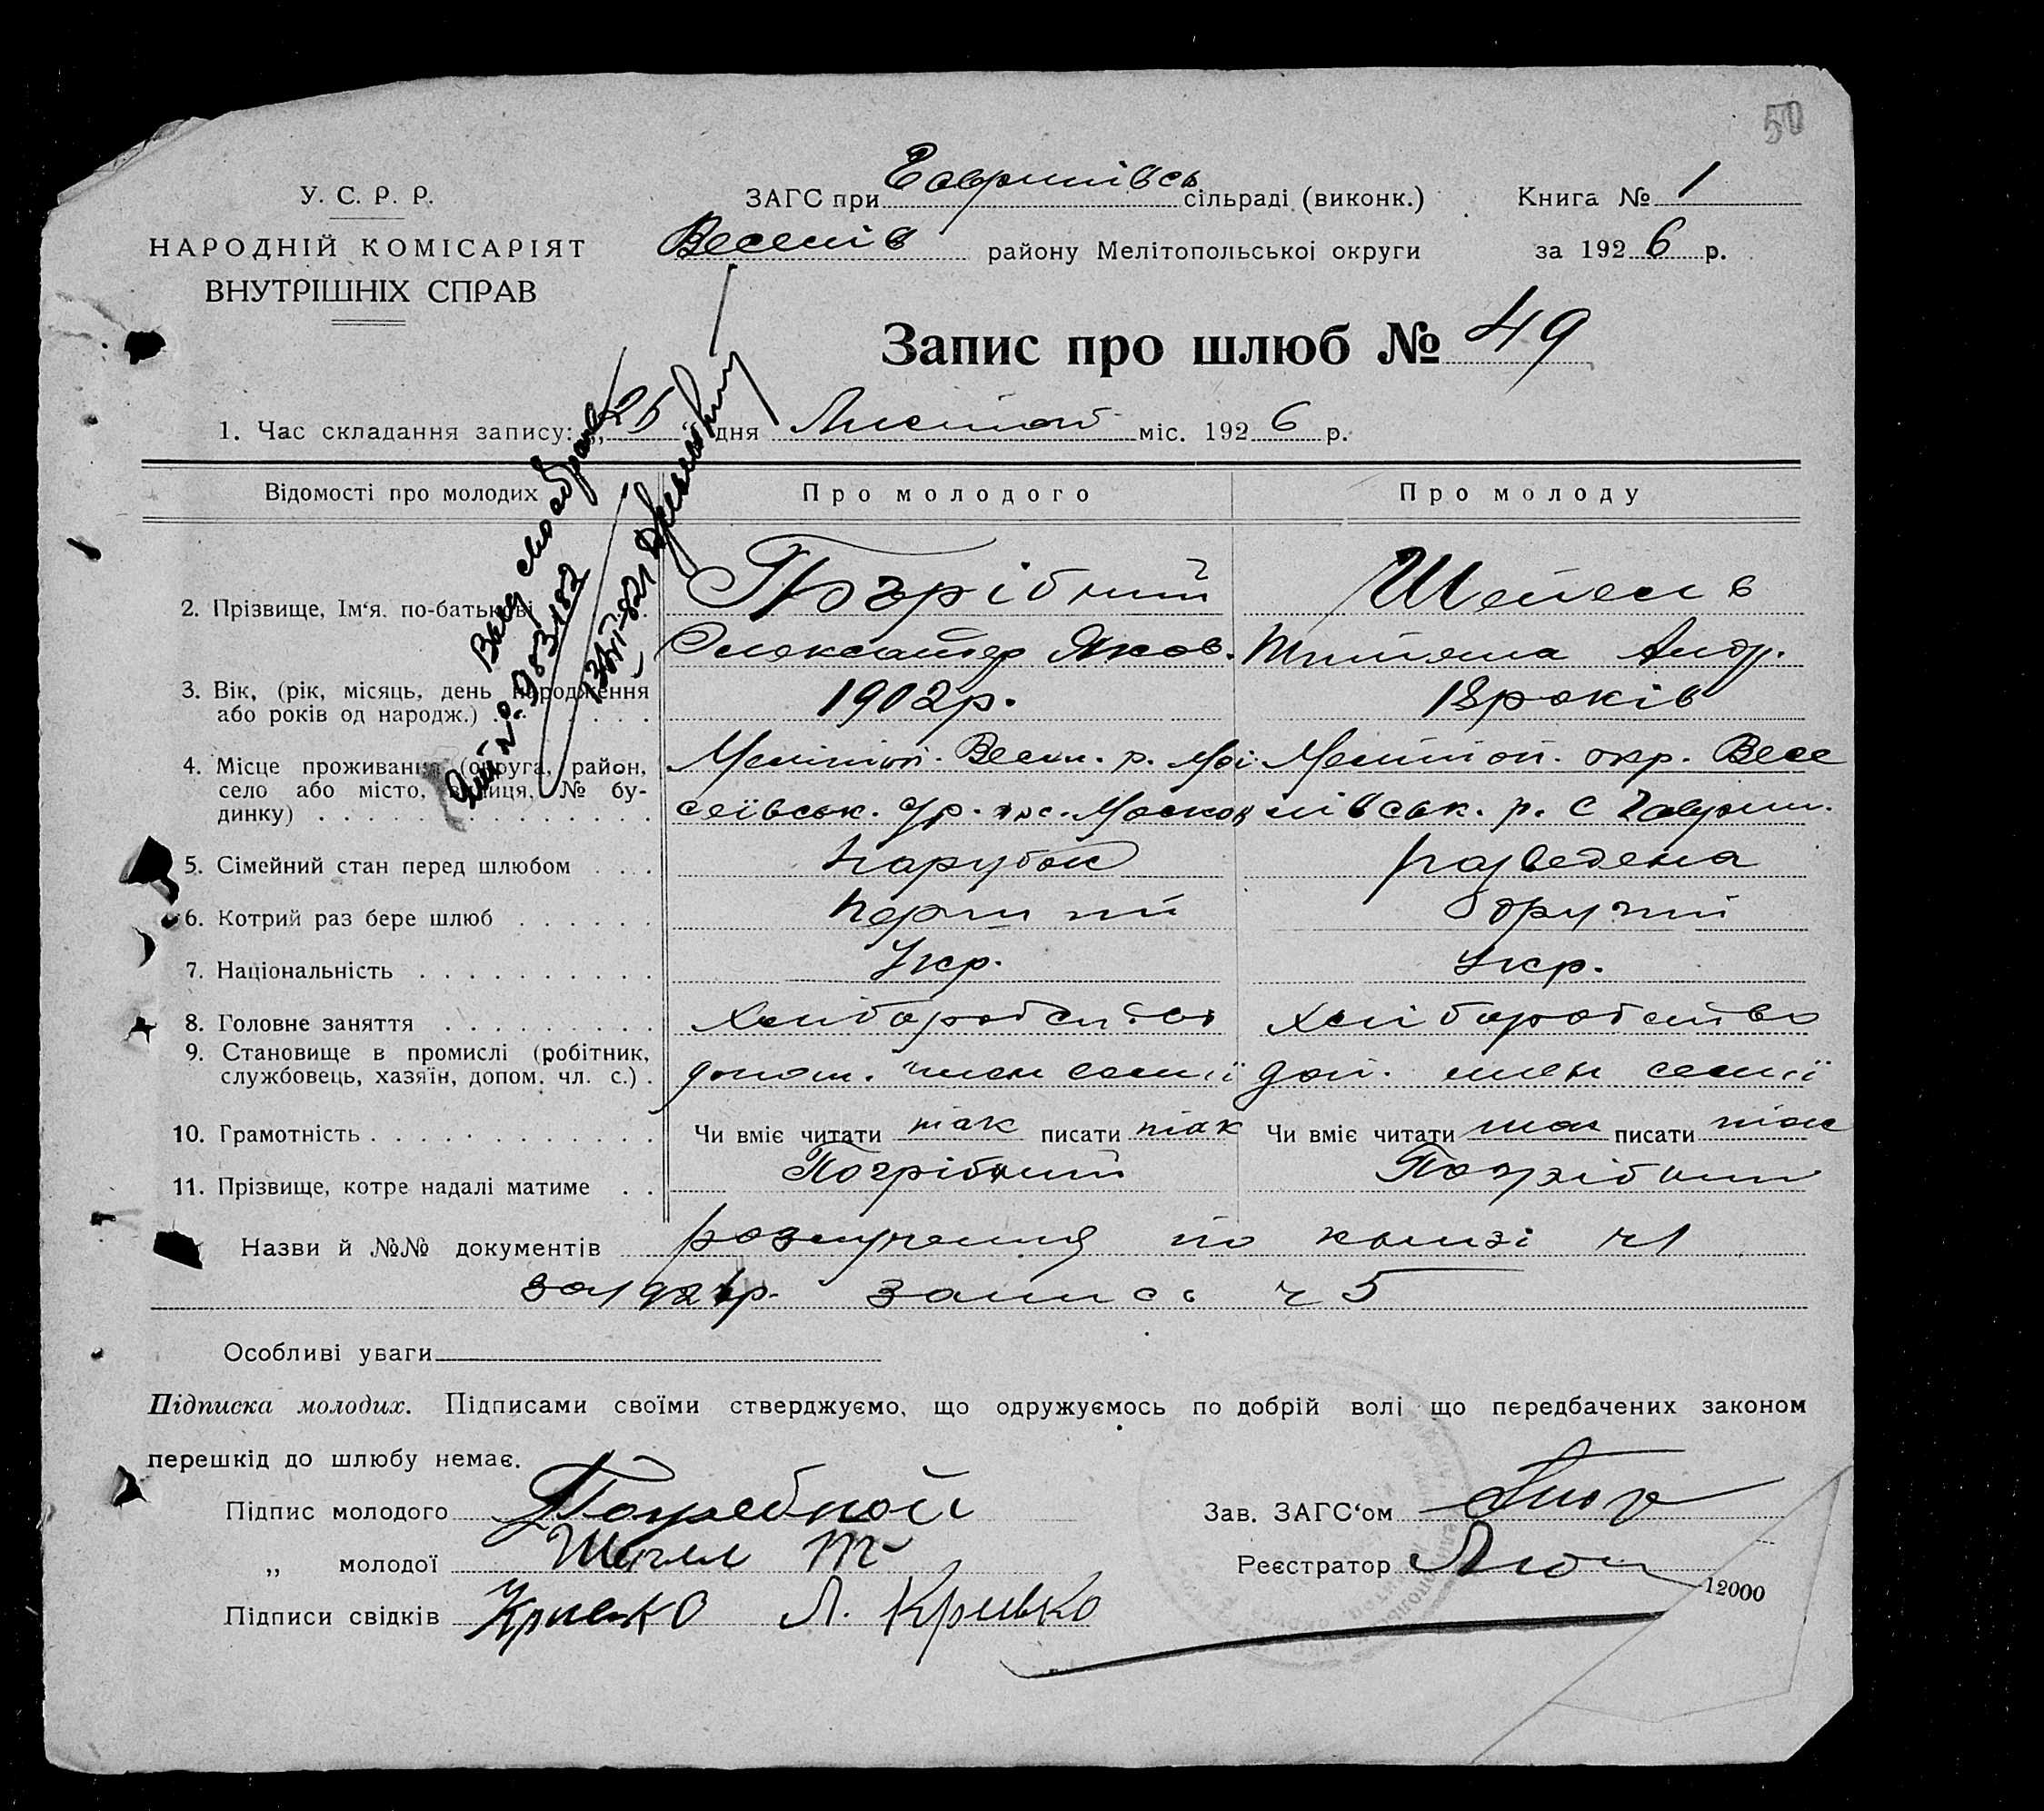 50
У. С. Р. Р.
НАРОДНІЙ КОМІСАРІЯТ
ВНУТРІШНІХ СПРАВ
ЗАГС при Гаврилівсь сільраді (виконк.) Книга № 1
Веселів району Мелітопольської округи за 1926 р.
Запис про шлюб № 49
1. Час складання запису: „25“ дня Листоп міс. 1926 р.
Відомості про молодих Про молодого Про молоду
2. Прізвище, Ім‘я. по-батькові Погрібний
Олександер Яков. Титяна Андр.
3. Вік, (рік, місяць, день народження
або років од народж.) 1902р. 18 років
4. Місце проживання (округа, район, Мелітоп. Весел. р. Мой Мелітоп. окр. Весе
село або місто, вулиця, № бу- сеївськ. с/р. Москов лівськ. р. с Гаврил.
динку)
5. Сімейний стан перед шлюбом парубок разведена
6. Котрий раз бере шлюб перший другий
7. Національність Укр. Укр.
8. Головне заняття хліборобство хліборобство
9. Становище в промислі (робітник,
службовець, хазяїн, допом. чл. с.) допом. член семії доп. член семії
10. Грамотність Чи вміє читати так писати так Чи вміє читати так писати так
11. Прізвище, котре надалі матиме Погрібний Погрібний
Назви й №№ документів розлучения по книзі ч1
за 192 р. запись ч 5
Особливі уваги
Підписка молодих. Підписами своїми стверджуємо, що одружуємось по добрій волі що передбачених законом
перешкід до шлюбу немає.
Підпис молодого Погребной Зав. ЗАГС‘ом
„ молодої Реєстратор
12000
Підписи свідків Кривко Л. Кривко